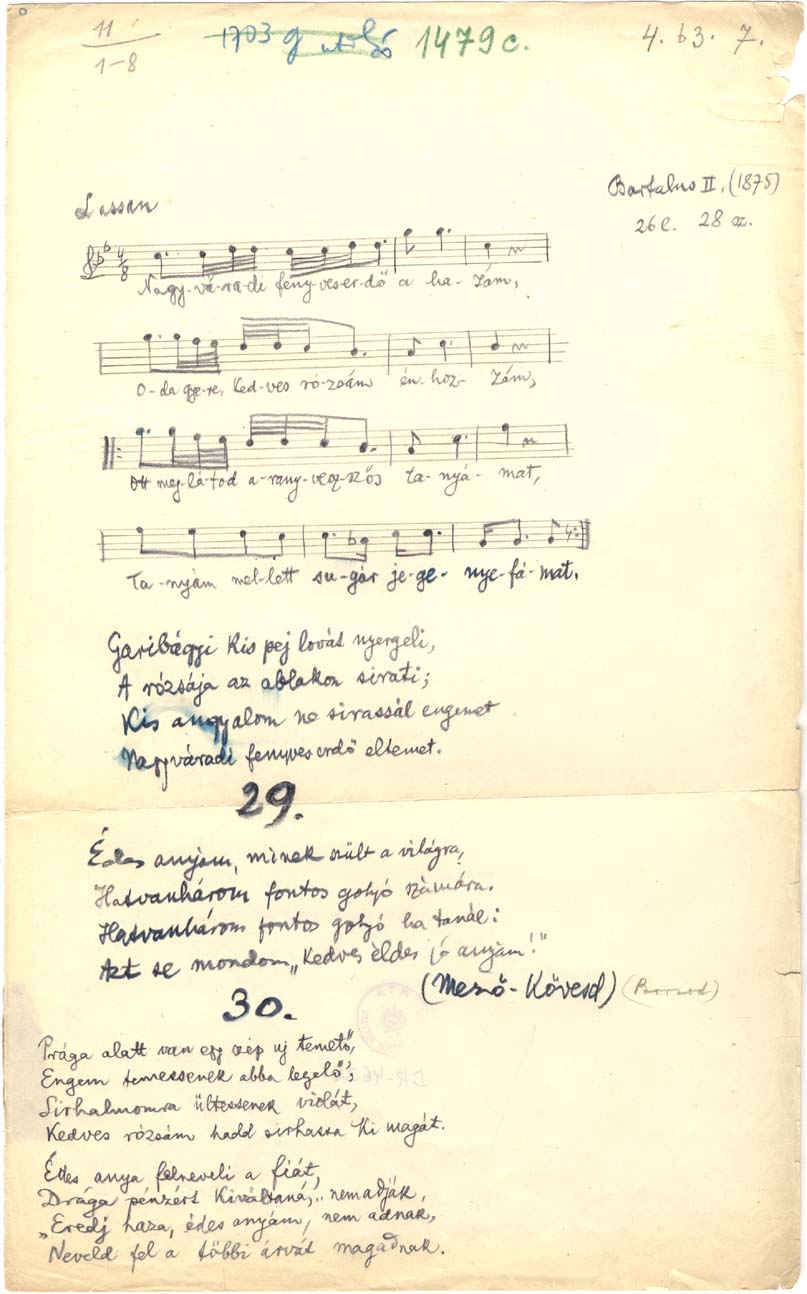 11
1-8
1703 g utolsó 1479 c. 4. b3. 7.
Bartalus II. (1875)
26 l. 28 sz.
Lassan
4/8
Nagy-vá-ra-di feny-ves-er-dő a ha-zám,
O-da gye-re, Ked-ves ró-zsám én-hoz-zám,
Ott meg-lá-tod a-rany-vesz-szős ta-nyá-mat,
Ta-nyám mel-lett su-gár je-ge-nye-fá-mat.
Garibágyi Kis pej lovát nyergeli,
A rózsája az ablakon sirati;
Kis angyalom ne sirassál engemet
Nagyváradi fenyveserdő eltemet.
29.
Édes anyám, minek szült a világra,
Hatvanhárom fontos golyó számára.
Hatvanhárom fontos golyó ha tanál:
Azt se mondom „Kedves éldes jó anyám!"
(Mező-Kövesd) (Borsod)
30.
Prága alatt van egy szép uj temető,
Engem temessenek abba legelő';
Sirhalmomra ültessenek violát,
Kedves rózsám hadd sirhassa Ki magát.
Édes anya felneveli a fiát,
Drága pénzért Kiváltaná, nem adják,
„Eredj haza, édes anyám, nem adnak,
Neveld fel a többi árvát magadnak.